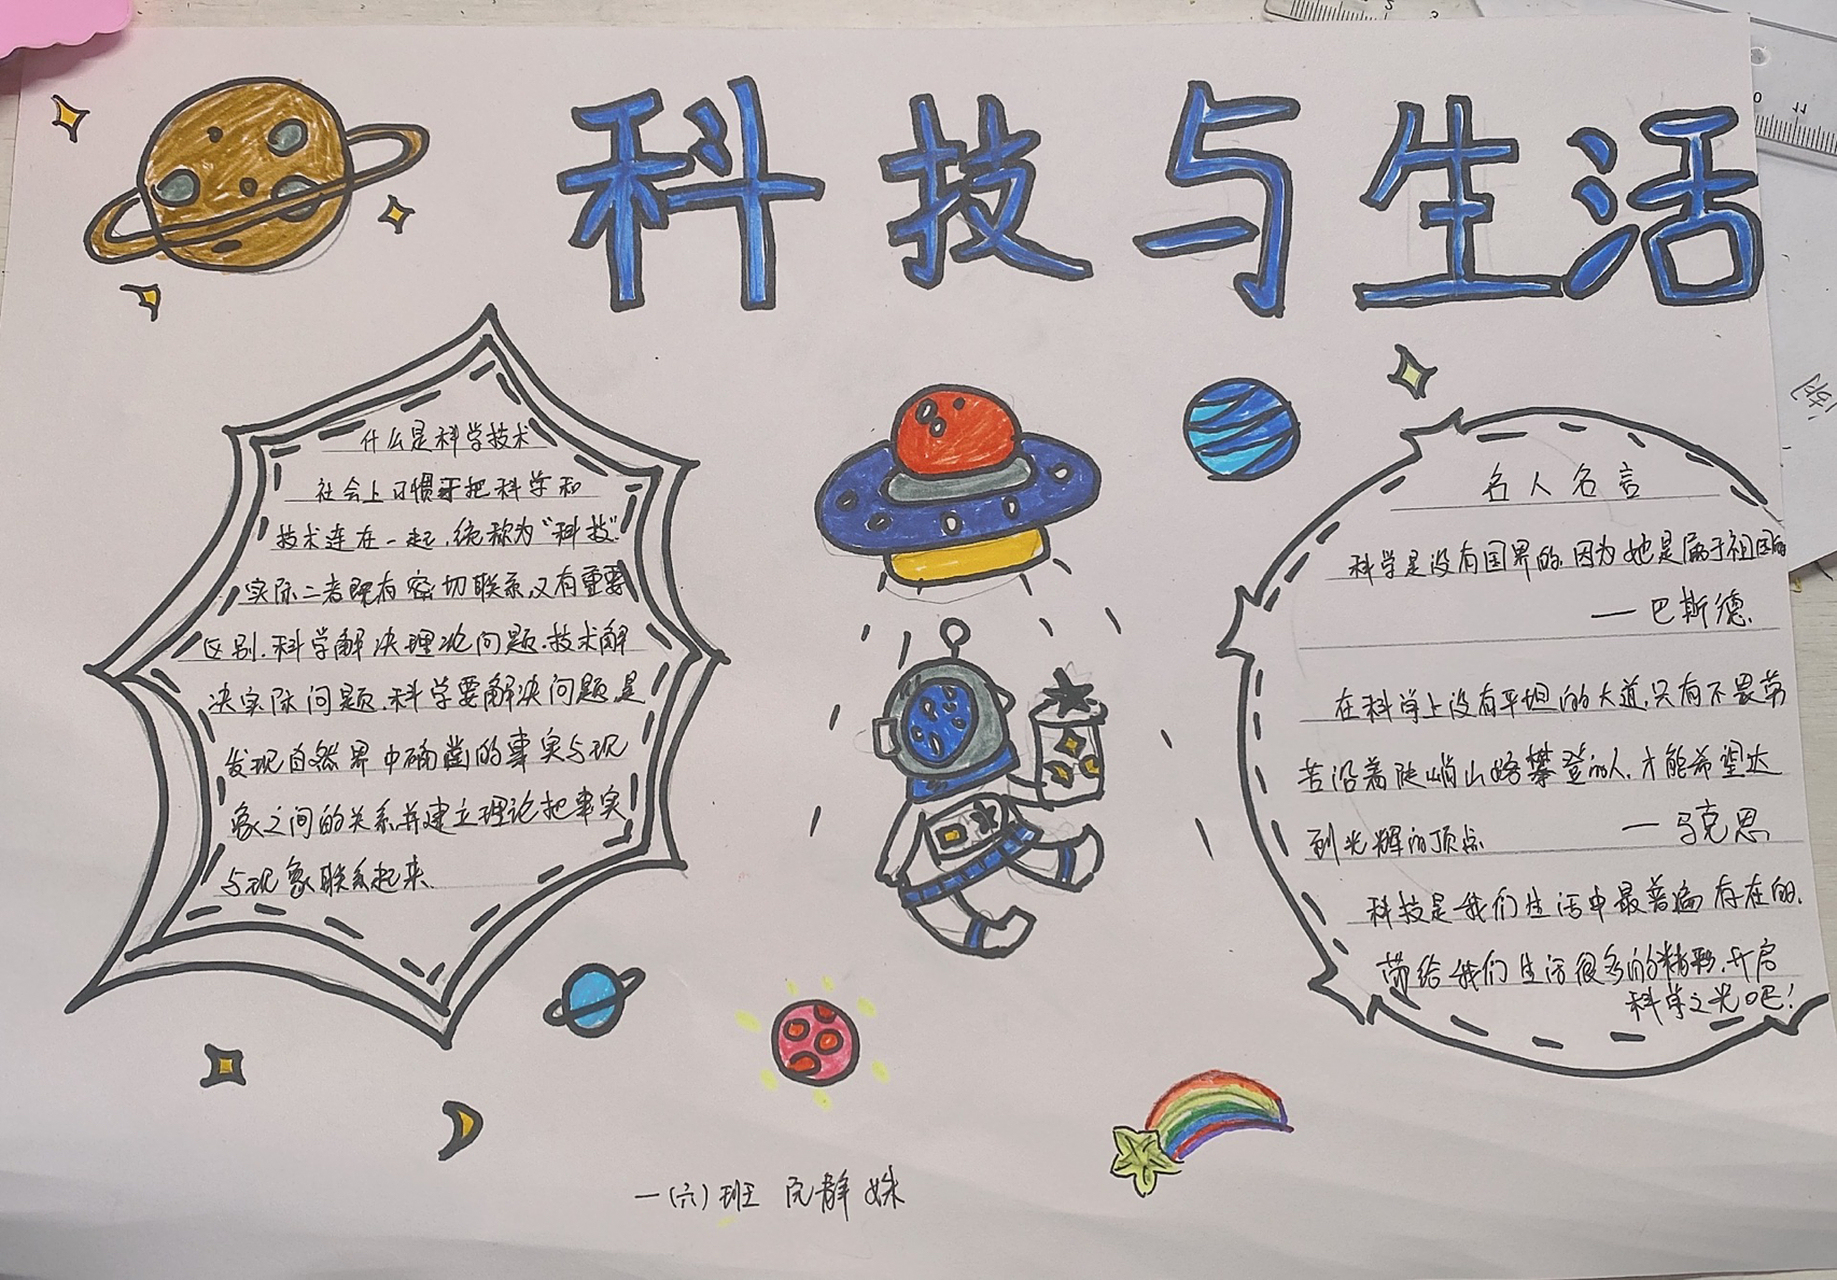 科技与生活
什么是科学技术
社会上习惯于把科学和
技术连在一起,统称为“科技”
实际二者既有密切联系,又有重要
区别.科学解决理论问题.技术解
决实际问题.科学要解决问题是
发现自然界中确凿的事实与现
象之间的关系并建立理论把事实
与现象联系起来.
名人名言
科学是没有国界的.因为她是属于祖国的
—巴斯德.
在科学上没有平坦的大道,只有不畏劳
苦沿着陡峭山路攀登的人,才能希望达
到光辉的顶点
—马克思
科技是我们生活中最普遍存在的.
带给我们生活很多的精彩.开启
科学之光吧!
一(六)班 阮静姝